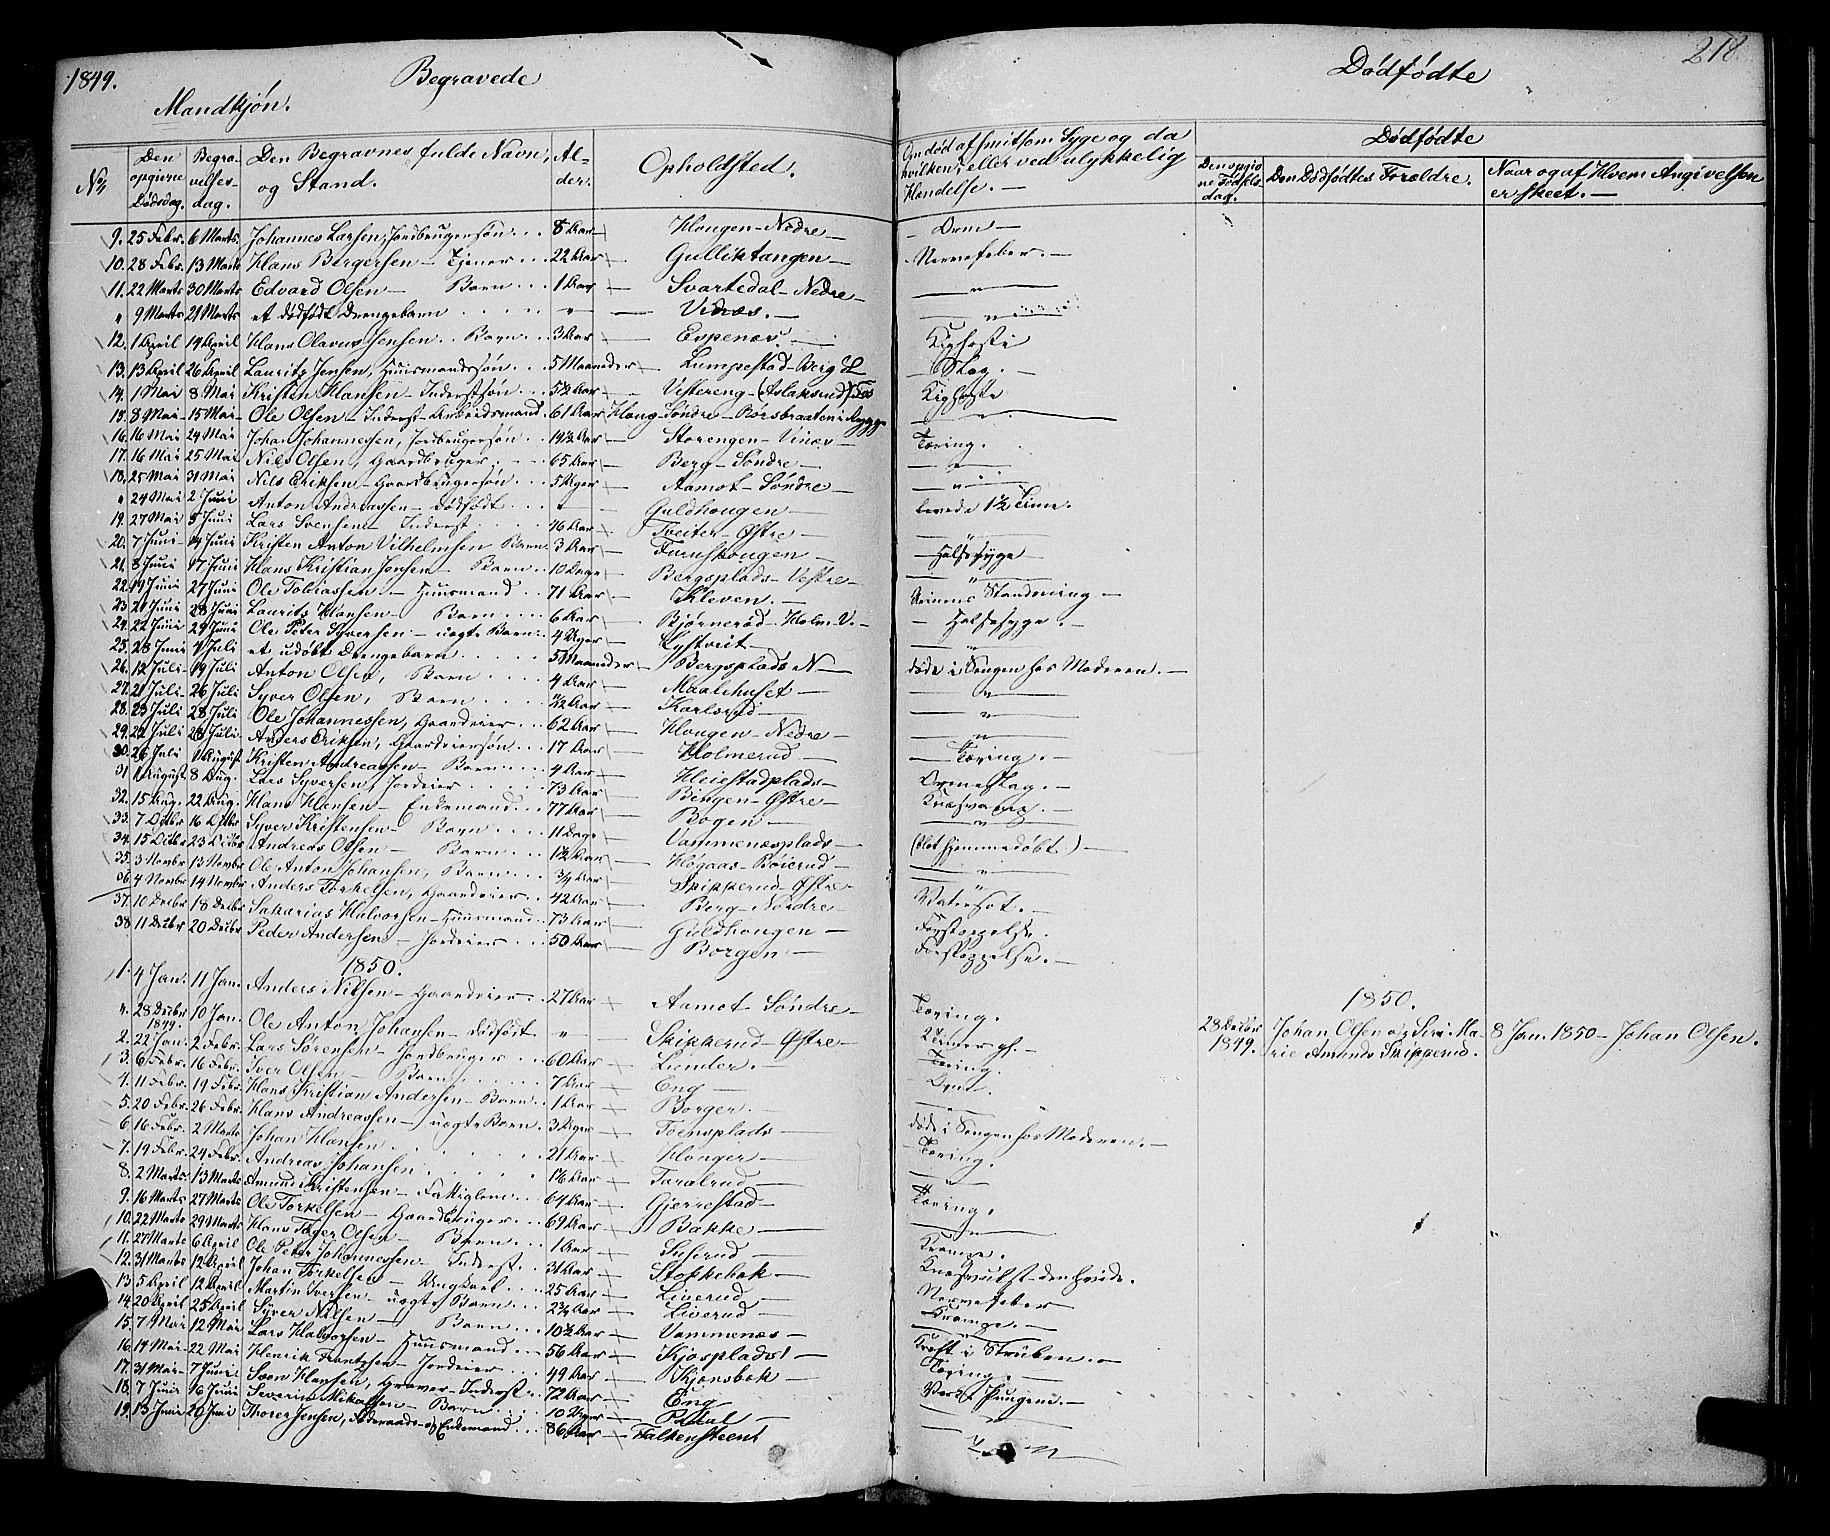 1849. Begravede
Mandkjøn.
Dødfødte 218.
No Den opgivne Dødsdag. Begravelsesdag. Den Begravnes fulde Navn, og Stand. Alder. Opholdsted. Om død af smitsom Syge og da hvilken, eller ved ulykkelig Hændelse. —
Dødfødte
Den opgivne Fødselsdag. Den Dødfødtes Forældre. Naar og af Hvem Angivelsen er skeet. —
9. 25 Febr. 6 Marts. Johannes Larsen, Jordbrugersøn 8 Aar Hougen-Nedre — Orm —
10. 28 Febr. 13 Marts Hans Bergersen — Tjener 22 Aar Gulliktangen — Nervefeber. —
11. 22 Marts 30 Marts Edvard Olsen — Barn 1 Aar Svartedal-Nedre — — " —
" 9 Marts 21 Marts et dødfødt Drengebarn " — Vinæs. — — " —
12. 1 April 14 April Hans Olavus Jensen Barn 3 Aar Espenæs. — Kighoste
13. 13 April 26 April Lauritz Jensen, Huusmandssøn 5 Maaneder Lumpestad-Berg — Slag. —
14. 1 Mai 8 Mai Kristen Hansen — Inderstsøn 5½ Aar Vestereng (Aslaksrud) Kighoste
15. 8 Mai 15 Mai Ole Olsen — Inderst-Arbeidsmand 61 Aar Houg-Søndre — Rørsbraaten i Rygge — " —
16. 16 Mai 24 Mai Johan Johannessen, Jordbrugersøn 19½ Aar Storengen-Vinæs — Tæring.
17. 16 Mai 25 Mai Nils Olsen, Gaardbruger 65 Aar Berg-Søndre — — " —
18. 25 Mai 31 Mai Nils Eriksen — Gaardbrugersøn 5 Uger Aamot-Søndre — — " —
" 24 Mai 2 Juni Anton Andreassen — dødfødt " — Guldhougen — levede 1½ Time.
19. 27 Mai 5 Juni Lars Svensen — Inderst 76 Aar Tveiter-Østre — — " —
20. 7 Juni 14 Juni Kristen Anton Vilhelmsen Barn 3 Aar Furuhougen — Halssyge
21. 8 Juni 17 Juni Hans Kristian Jensen — Barn 10 Dage Bergsplads-Vestre — — " —
22. 19 Juni 27 Juni Ole Tobiassen — Huusmand 71 Aar Kleven. — Urinens Standsning —
23. 21 Juni 28 Juni Laurits Hansen — Barn 6 Aar Bjørnerød-Holm-V. — Halssyge. —
24. 22 Juni 29 Juni Ole Peter Syversen — uægte Barn 4 Uger Lystveit — — " —
25. 28 Juni 1 Juli et udøbt Drengebarn 5 Maaneder Bergsplads N — døde i Sengen hos Moderen. —
26. 12 Juli 19 Juli Anton Olsen, Barn 4 Aar Maalehuset — — " —
27. 21 Juli 26 Juli Syver Olsen, Barn ½ Aar Karlsrud — — " —
28. 23 Juli 28 Juli Ole Johannessen, Gaardeier 62 Aar Hougen-Nedre — — " —
29. 22 Juli 28 Juli Anders Eriksen, Gaardeiersøn 17 Aar Holmerud — Tæring. —
30. 26 Juli 1 August Kristen Andreassen — Barn 4 Aar Heiestadplads —
31. 1 August 8 Aug. Lars Syversen, Jordeier 73 Aar Bingen-Østre —
32. 15 Aug. 22 Aug. Hans Hansen — Enkemand 77 Aar Bogen —
33. 7 Octbr 16 Octbr Syver Kristensen — Barn 11 Dage Vammenæsplads — (blot hjemmedøbt) —
34. 15 Octbr 23 Octbr Andreas Olsen — Barn 1½ Aar Høgaas-Bøierud — — " —
35. 3 Novembr 13 Novembr Ole Anton Johansen, Barn ¾ Aar Skipperud-Østre — — " —
36. 4 Novembr 14 Novembr Anders Torkelsen, Gaardeier 42 Aar Berg-Nordre — Vatersot. —
37. 10 Decbr 18 Decbr Sakarias Halvorsen — Huusmand 73 Aar Guldhougen — Forstoppelse.
38. 11 Decbr 20 Decbr Peder Andersen — Jordeier 50 Aar Borgen — Forstoppelse. —
1850.
1. 4 Jan. 11 Jan. Anders Nilsen — Gaardeier 27 Aar Aamot-Søndre — Tæring.
1850.
". 28 Decbr 1849. 10 Jan. Ole Anton Johansen — dødfødt " — Skipperud-Østre — 28 Decbr 1849. Johan Olsen og Siri Marie Amunds Skipperud. 8 Jan. 1850 — Johan Olsen.
2. 22 Jan. 2 Febr. Lars Sørensen — Jordbruger 60 Aar Lunder. — Tæring.
3. 6 Febr. 16 Febr. Iver Olsen — Barn 7 Aar Eng —
4. 11 Febr. 19 Febr. Hans Kristian Andersen — Barn 1 Aar Borger. — — " —
5. 20 Febr. 26 Febr. Hans Andreassen — uægte Barn 3 Uger Toensplads — døde i Sengen hos Moderen. —
6. 16 Febr. 2 Marts Johan Hansen 21 Aar Honger — Tæring.
7. 19 Febr. 24 Febr. Andreas Johansen 1/6 Aar Taralrud — — " —
8. 2 Marts 13 Marts Amund Kristensen — Fattiglem 64 Aar Gjerrestad — Tæring.
9. 16 Marts 27 Marts Ole Torkelsen — Gaardbruger 69 Aar Bakke — — " —
10. 22 Marts 29 Marts Hans Thager Olsen — Barn 1 Aar Suserud — Krampe.
11. 27 Marts 6 April Ole Peter Johannessen — Inderst 31 Aar Stokkebæk —
12. 31 Marts 12 April Johan Torkelsen — Ungkarl 25 Aar Liverud — Nervefeber
13. 5 April 12 April Martin Iversen — uægte Barn 2¾ Aar Liverud — Krampe. —
14. 20 April 25 April Syver Nilsen — Barn 10½ Aar Vammenæs — — " —
15. 7 Mai 12 Mai Lars Halvorsen — Huusmand 56 Aar Kjosplads — Kræft i Struben. —
16. 14 Mai 22 Mai Henrik Frantzsen — Jordeier 49 Aar Kjønsbæk — Tæring. —
17. 31 Mai 7 Juni Sven Hansen, Graver-Inderst 72 Aar Eng —
18. 7 Juni 16 Juni Severin Mikalsen — Barn 10 Uger — — " —
19. 13 Juni 20 Juni Thorer Jensen, Føderaads- og Enkemand 86 Aar Falkensteen —